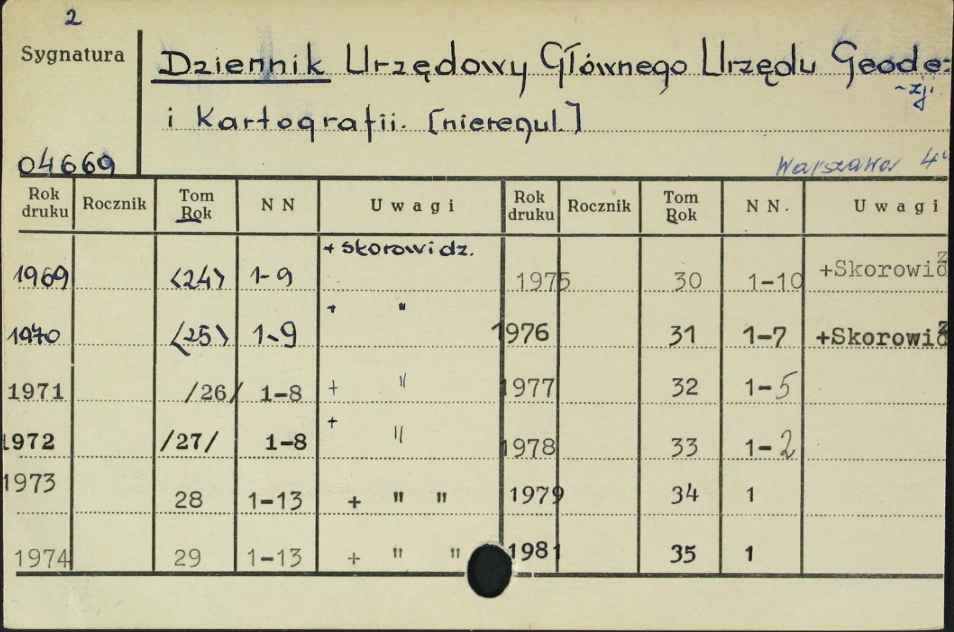 2
Sygnatura
Dziennik Urzędowy Głównego Urzędu Geode-
-zji
i Kartografii. [nieregul.]
04669
Warszawa 4°
Rok druku Rocznik Tom Rok NN Uwagi Rok druku Rocznik Tom Rok NN. Uwagi
1969 <24> 1-9 + skorowidz. 1975 30 1-10 +Skorowidz
1970 <25> 1-9 + " 1976 31 1-7 +Skorowidz
1971 /26/ 1-8 + " 1977 32 1-5
1972 /27/ 1-8 + " 1978 33 1-2
1973 28 1-13 + " " 1979 34 1
1974 29 1-13 + " " 1981 35 1